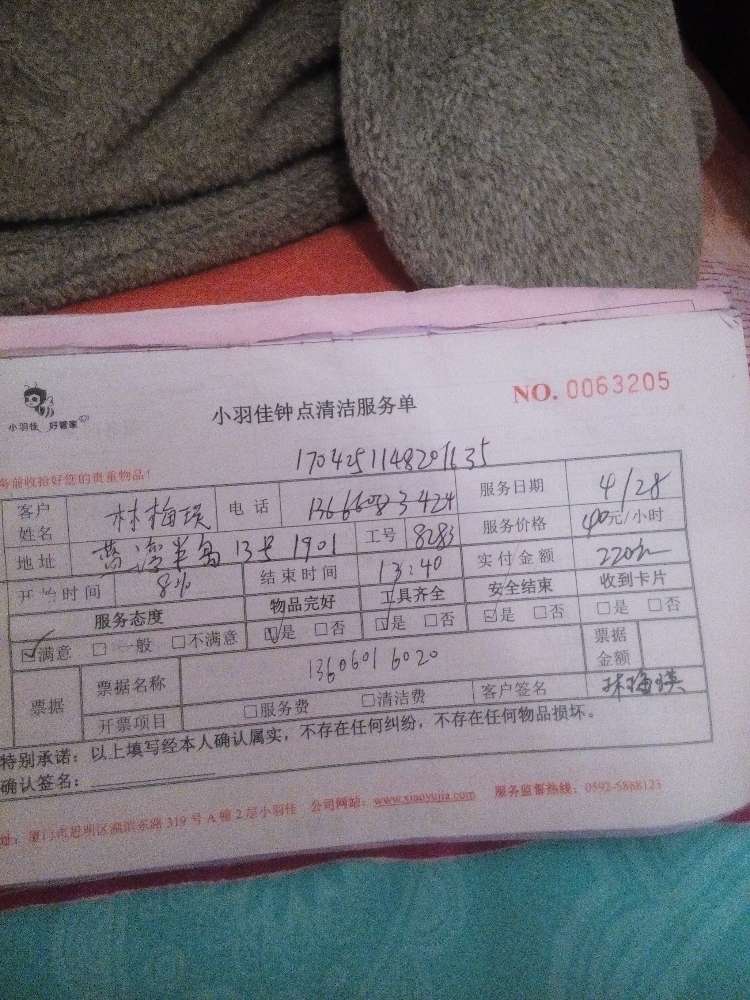 小羽佳 好管家
小羽佳钟点清洁服务单
NO. 0063205
务前收拾好您的贵重物品!
1704251148201635
客户姓名 林梅瑛 电话 13666083424 服务日期 4/28
地址 湾半岛13号1901 工号 8283 服务价格 40元/小时
开始时间 结束时间 13:40 实付金额 220
服务态度 物品完好 工具齐全 安全结束 收到卡片
☑满意 □一般 □不满意 ☑是 □否 ☑是 □否 ☑是 □否 □是 □否
票据 票据名称 13606016020 票据金额
开票项目 □服务费 □清洁费 客户签名 林梅瑛
特别承诺：以上填写经本人确认属实，不存在任何纠纷，不存在任何物品损坏。
确认签名：
址：厦门市思明区 东路319号A幢2层小羽佳 公司网站：www.xiaoyujia.com 服务监督热线：0592-5868123